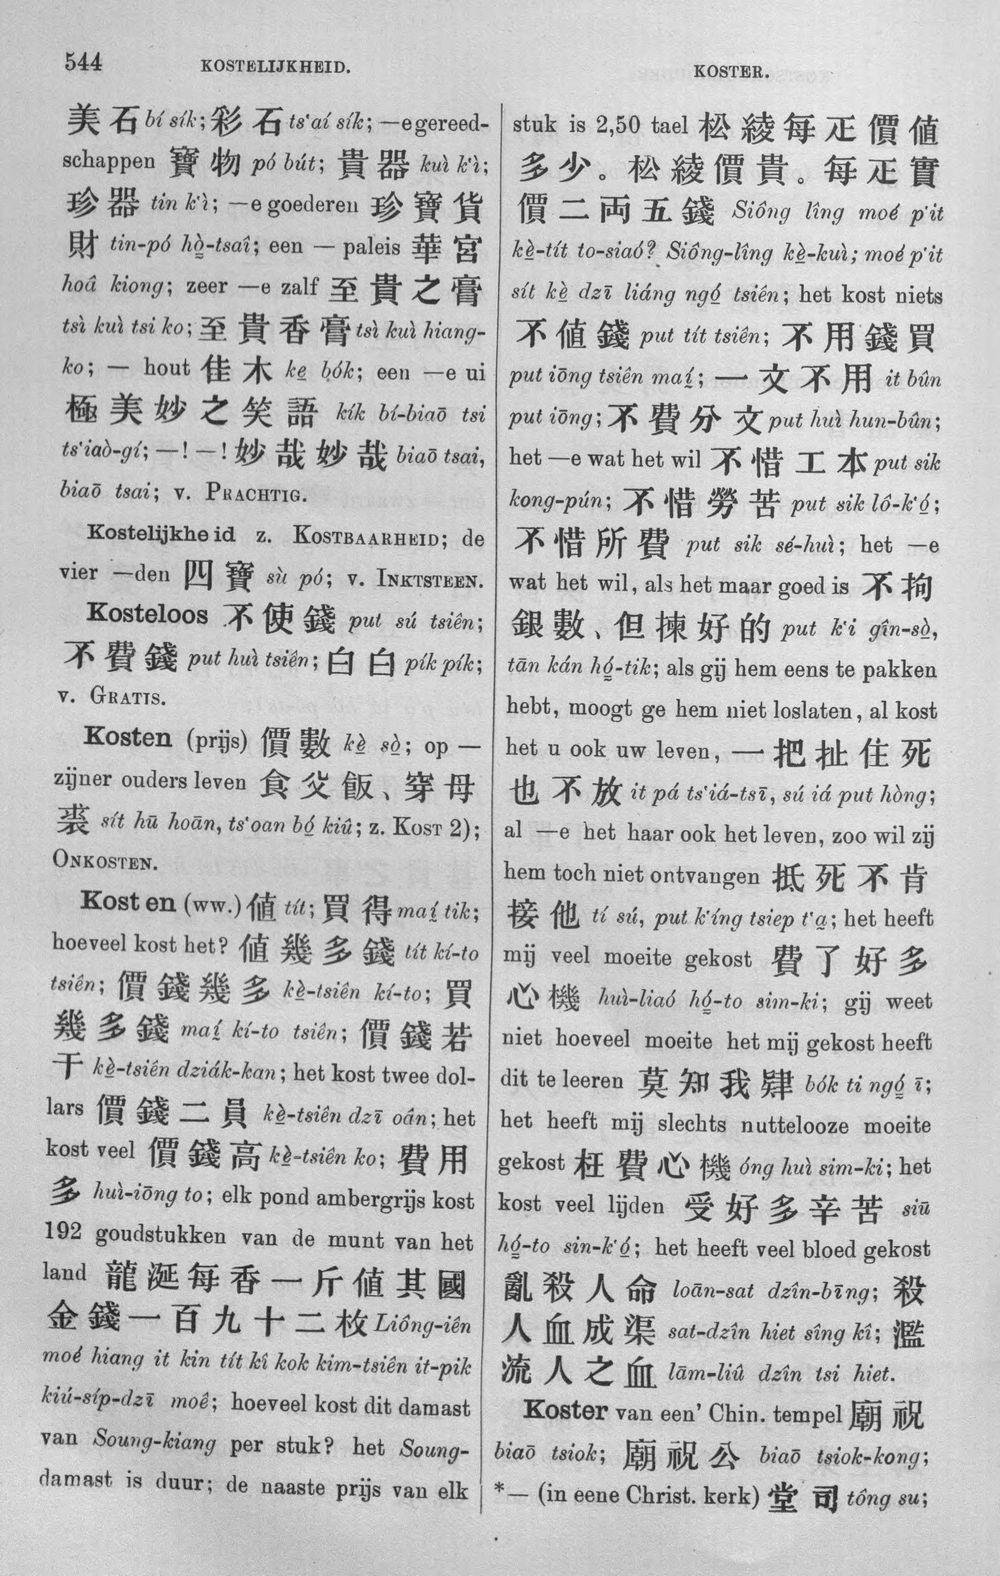 544
KOSTELIJKHEID.
KOSTER.
美石 bí sík; 彩石 ts‘aí sík; —e gereed-
schappen 寶物 pó bút; 貴器 kuì k‘ì;
珍器 tin k‘ì; —e goederen 珍寶貨
財 tin-pó hò̤-tsaî; een — paleis 華宮
hoâ kiong; zeer —e zalf 至貴之膏
tsì kuì tsi ko; 至貴香膏 tsì kuì hiang-
ko; — hout 佳木 ke̤ bók; een —e ui
極美妙之笑語 kík bí-biaō tsi
ts‘iaò-gí; —! —! 妙哉妙哉 biaō tsai,
biaō tsai; v. PRACHTIG.
Kostelijkheid z. KOSTBAARHEID; de
vier —den 四寶 sù pó; v. INKTSTEEN.
Kosteloos 不使錢 put sú tsiên;
不費錢 put huì tsiên; 白白 pík pík;
v. GRATIS.
Kosten (prijs) 價數 kè̤ sò̤; op —
zijner ouders leven 食父飯、穿母
裘 sít hū hoān, ts‘oan bó̤ kiû; z. KOST 2);
ONKOSTEN.
Kosten (ww.) 値 tít; 買得 maí̤ tik;
hoeveel kost het? 値幾多錢 tít kí-to
tsiên; 價錢幾多 kè̤-tsiên kí-to; 買
幾多錢 maí̤ kí-to tsiên; 價錢若
干 kè̤-tsiên dziák-kan; het kost twee dol-
lars 價錢二員 kè̤-tsiên dzī oân; het
kost veel 價錢高 kè̤-tsiên ko; 費用
多 huì-iōng to; elk pond ambergrijs kost
192 goudstukken van de munt van het
land 龍涎每香一斤値其國
金錢一百九十二枚 Liông-iên
moé hiang it kin tít kî kok kim-tsiên it-pik
kiú-síp-dzī moê; hoeveel kost dit damast
van Soung-kiang per stuk? het Soung-
damast is duur; de naaste prijs van elk
stuk is 2,50 tael 松綾每疋價値
多少。松綾價貴。每疋實
價二両五錢 Siông lîng moé p‘it
kè̤-tít to-siaó? Siông-lîng kè̤-kuì; moé p‘it
sít kè̤ dzī liáng ngó̤ tsiên; het kost niets
不値錢 put tít tsiên; 不用錢買
put iōng tsiên maí̤; 一文不用 it bûn
put iōng; 不費分文 put huì hun-bûn;
het —e wat het wil 不惜工本 put sik
kong-pún; 不惜勞苦 put sik lô-k‘ó̤;
不惜所費 put sik sé-huì; het —e
wat het wil, als het maar goed is 不拘
銀數、但揀好的 put k‘i gîn-sò̤,
tān kán hó̤-tik; als gij hem eens te pakken
hebt, moogt ge hem niet loslaten, al kost
het u ook uw leven, 一把扯住死
也不放 it pá ts‘iá-tsī, sú iá put hòng;
al —e het haar ook het leven, zoo wil zij
hem toch niet ontvangen 抵死不肯
接他 tí sú, put k‘íng tsiep t‘a̤; het heeft
mij veel moeite gekost 費了好多
心機 huì-liaó hó̤-to sim-ki; gij weet
niet hoeveel moeite het mij gekost heeft
dit te leeren 莫知我肄 bók ti ngó̤ ī;
het heeft mij slechts nuttelooze moeite
gekost 枉費心機 óng huì sim-ki; het
kost veel lijden 受好多辛苦 siū
hó̤-to sin-k‘ó̤; het heeft veel bloed gekost
亂殺人命 loān-sat dzîn-bīng; 殺
人血成渠 sat-dzîn hiet sîng kî; 濫
流人之血 lām-liû dzîn tsi hiet.
Koster van een’ Chin. tempel 廟祝
biaō tsiok; 廟祝公 biaō tsiok-kong;
*— (in eene Christ. kerk) 堂司 tông su;